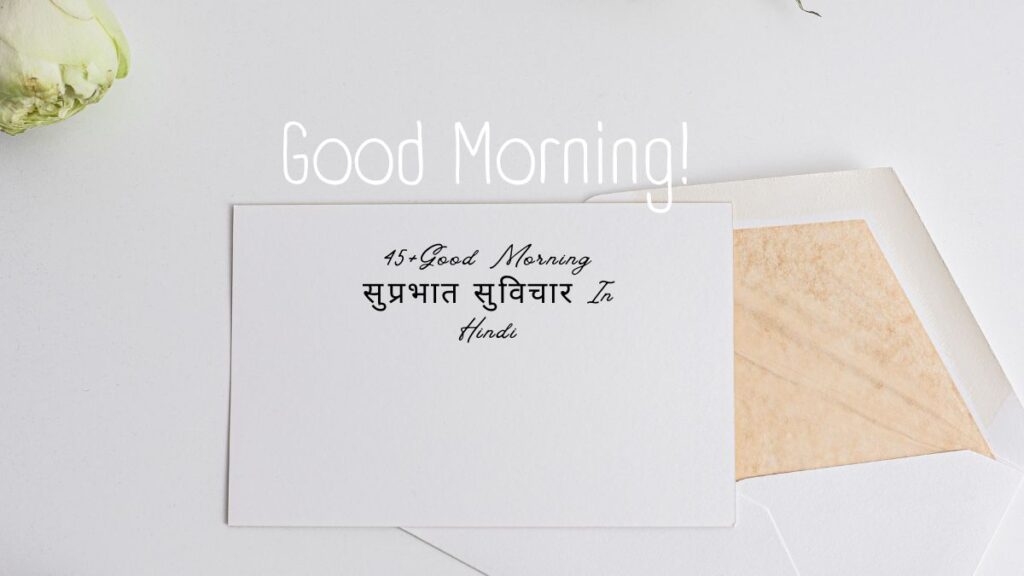 Good Morning!
45+Good Morning
सुप्रभात सुविचार In
Hindi